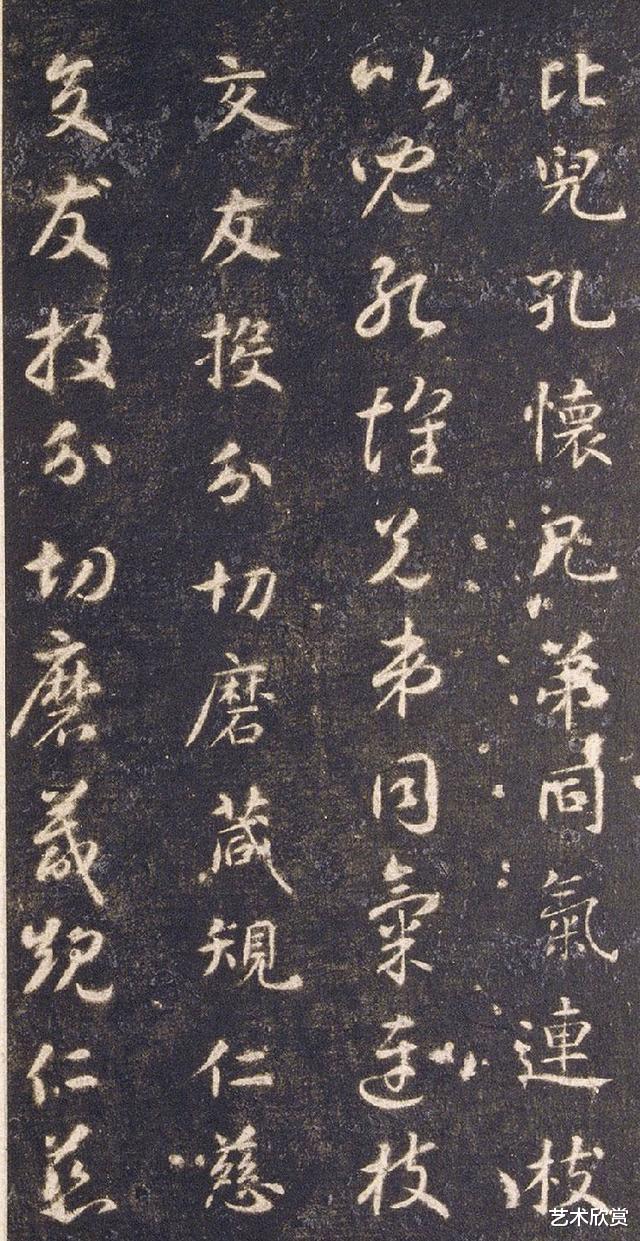 比兒孔懷兄弟同氣連枝
比兒孔懷兄弟同氣連枝
交友投分切磨箴規仁慈
交友投分切磨箴規仁慈
艺术欣赏